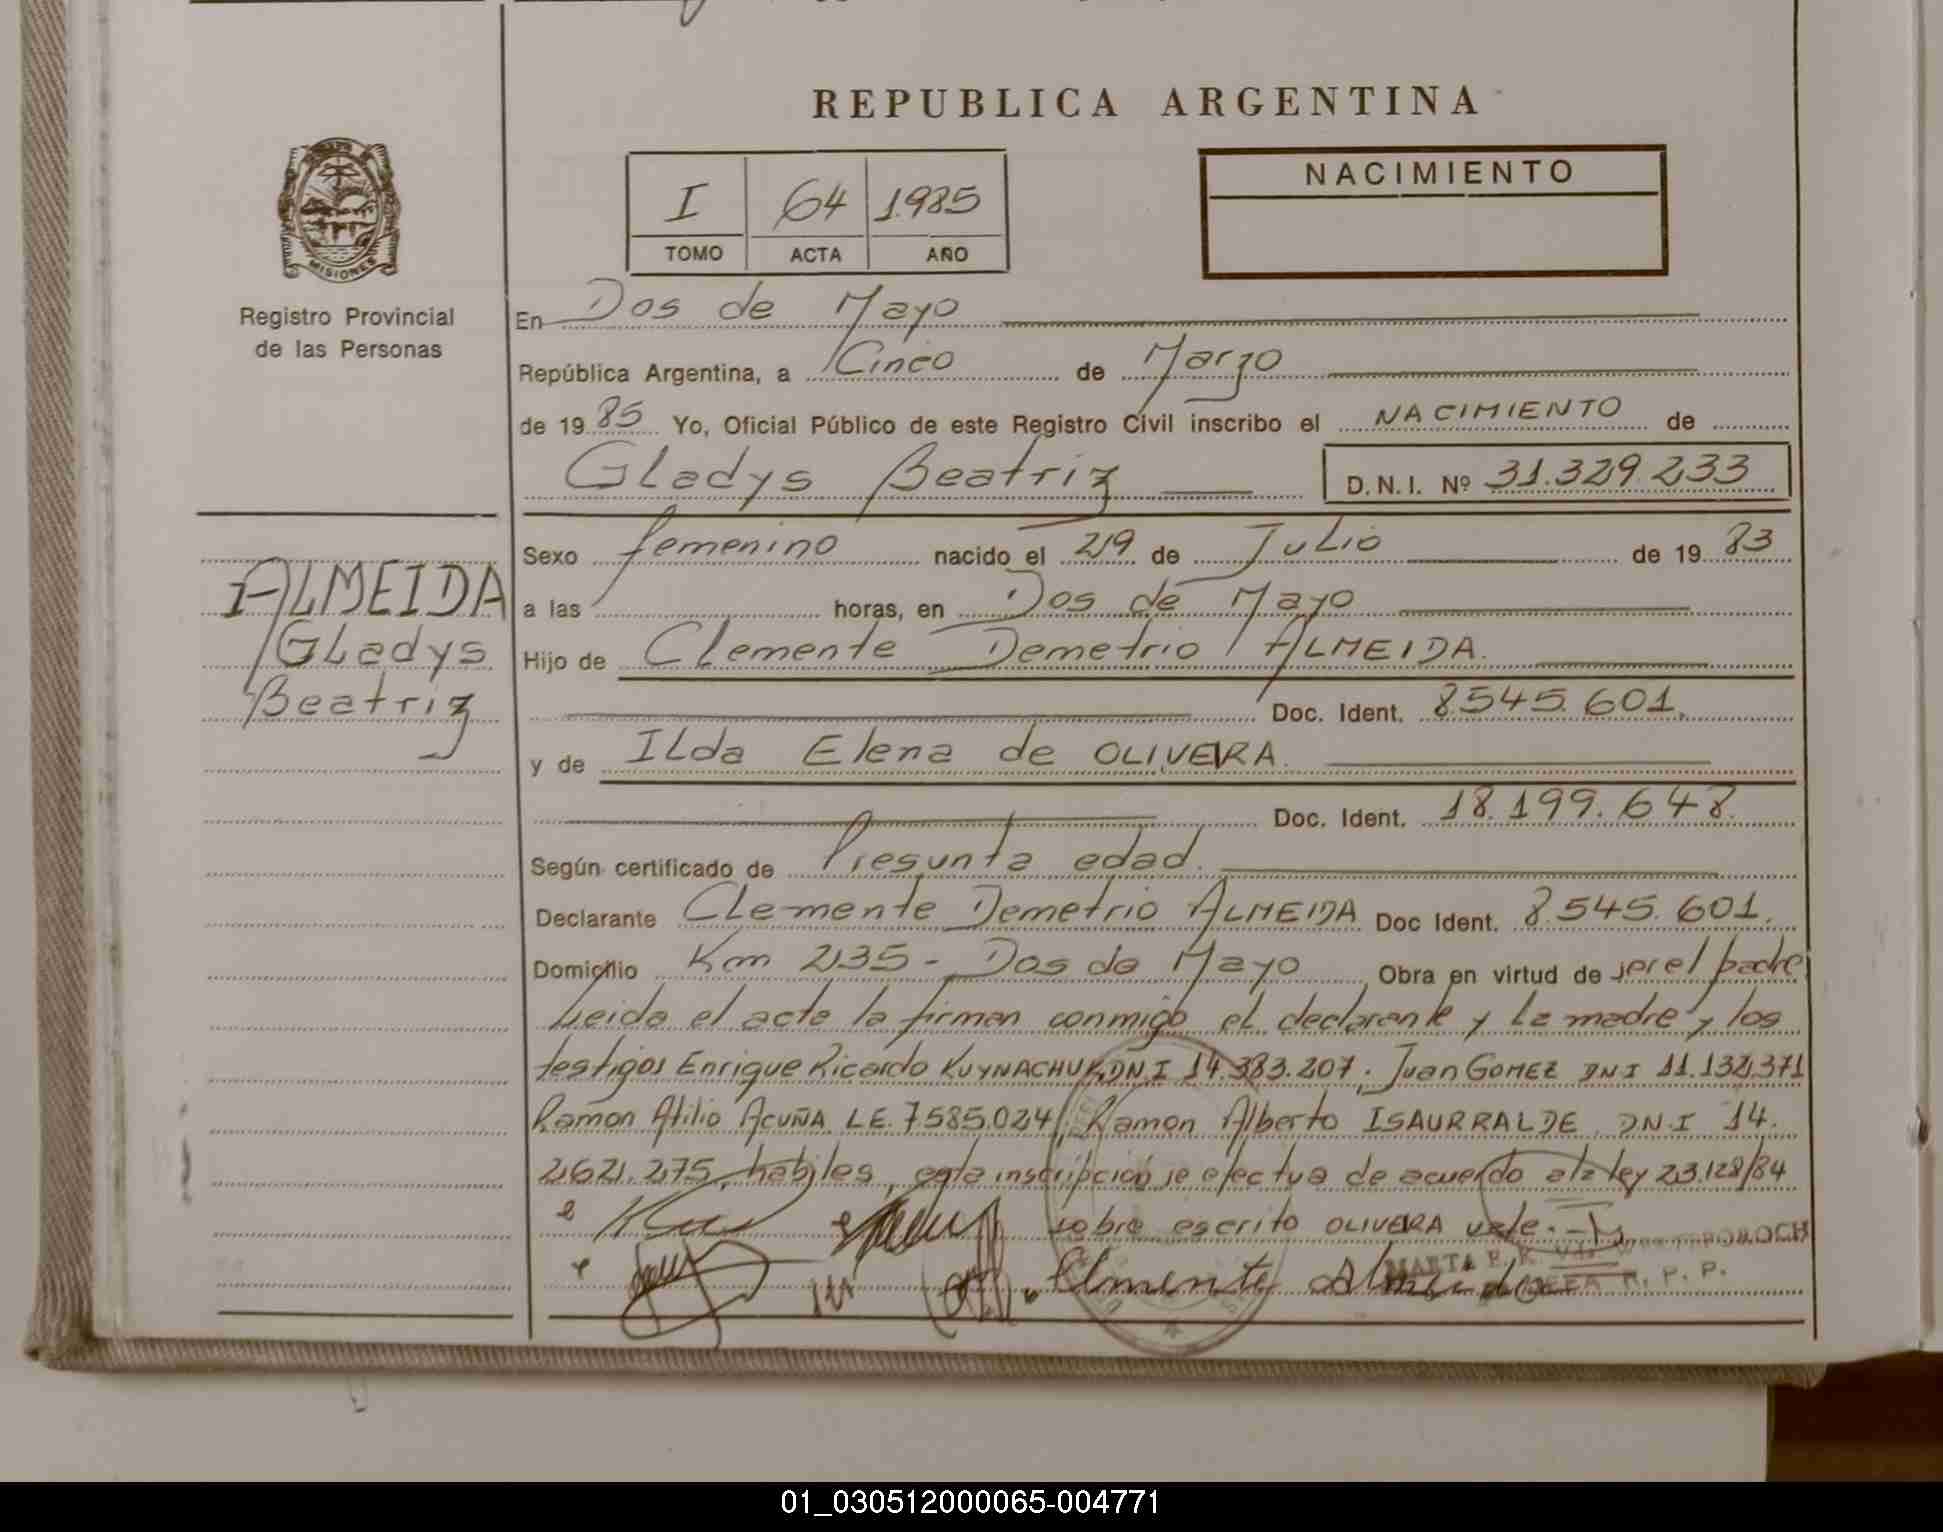 REPUBLICA ARGENTINA
NACIMIENTO
I 64 1985
TOMO ACTA AÑO
MISIONES
Registro Provincial
de las Personas
En Dos de Mayo
República Argentina, a Cinco de Marzo
de 19 85 Yo, Oficial Público de este Registro Civil inscribo el NACIMIENTO de
Gladys Beatriz D.N.I. Nº 31.329.233
Sexo femenino nacido el 29 de Julio de 19 83
ALMEIDA
Gladys
Beatriz
a las horas, en Dos de Mayo
Hijo de Clemente Demetrio ALMEIDA.
Doc. Ident. 8.545.601.
y de ILda Elena de OLIVERA.
Doc. Ident. 18.199.648.
Según certificado de Presunta edad.
Declarante Clemente Demetrio ALMEIDA Doc Ident. 8.545.601.
Domicilio Km 235 - Dos de Mayo Obra en virtud de ser el padre
Leida el acta la firman conmigo el declarante y la madre y los
testigos Enrique Ricardo KUYNACHUK DNI 14.383.207, Juan GOMEZ DNI 11.132.371
Ramon Atilio ACUÑA LE. 7585.024, Ramon Alberto ISAURRALDE DN.I 14.
262.275, habiles, esta inscripción se efectua de acuerdo a la ley 23.128/84
sobre escrito OLIVERA vale.
MARTA
R. P. P.
Clmente Almeida
01_030512000065-004771